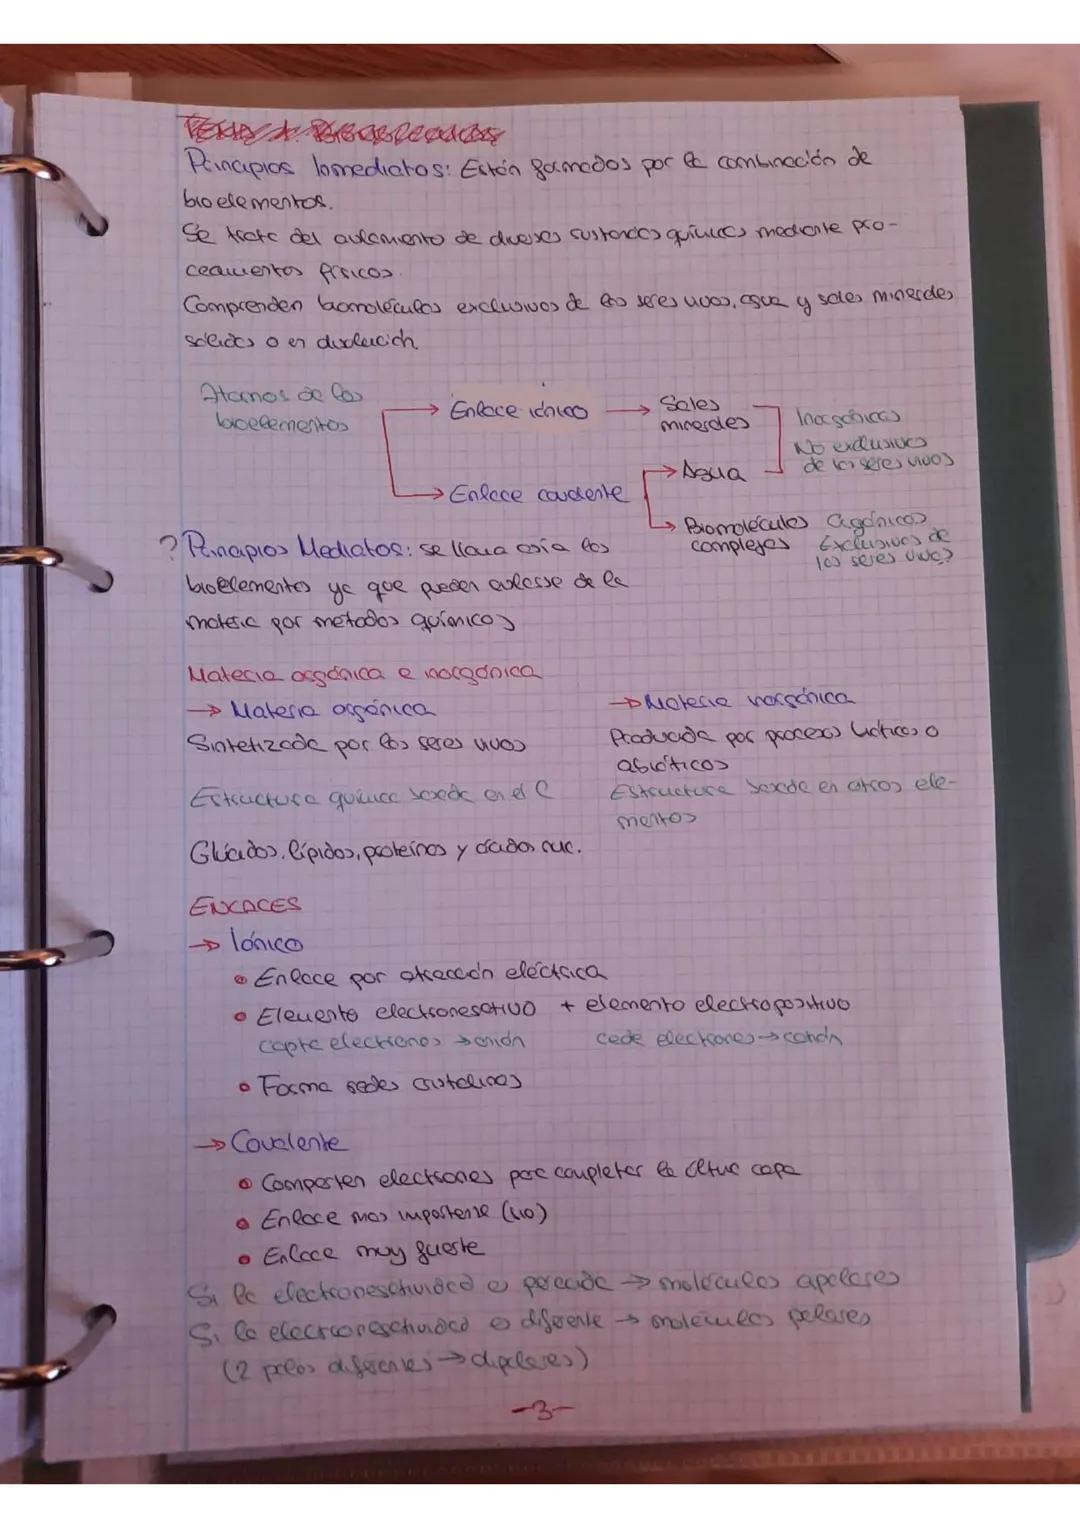 Principios Inmediatos: Están formados por la combinación de
bioelementos.
Se trata del aislamiento de diversas sustancias químicas mediante pro-
cedimientos físicos.
Comprenden biomoléculas exclusivas de los seres vivos, agua y sales minerales
sólidas o en disolución.
Átomos de los
bioelementos
→ Enlace iónico → Sales
minerales
Inorgánicas
No exclusivas
de los seres vivos
→ Agua
→ Enlace covalente
→ Biomoléculas
complejas
Orgánicas
Exclusivas de
los seres vivos?
? Principios Mediatos: se llama así a los
bioelementos ya que pueden aislarse de la
materia por métodos químicos
Materia orgánica e inorgánica
→ Materia orgánica
Sintetizada por los seres vivos
Estructura química basada en el C
Glúcidos, lípidos, proteínas y ácidos nuc.
→ Materia inorgánica
Producida por procesos bióticos o
abióticos
Estructura basada en otros ele-
mentos
ENLACES
→ Iónico
• Enlace por atracción eléctrica
• Elemento electronegativo + elemento electropositivo
capta electrones → anión cede electrones → catión
• Forma redes cristalinas
→ Covalente
• Comparten electrones para completar la última capa
• Enlace mas importante (no)
• Enlace muy fuerte
Si la electronegatividad es parecida → moléculas apolares
Si la electronegatividad es diferente → moléculas polares
(2 polos diferentes → dipolares)
-3-